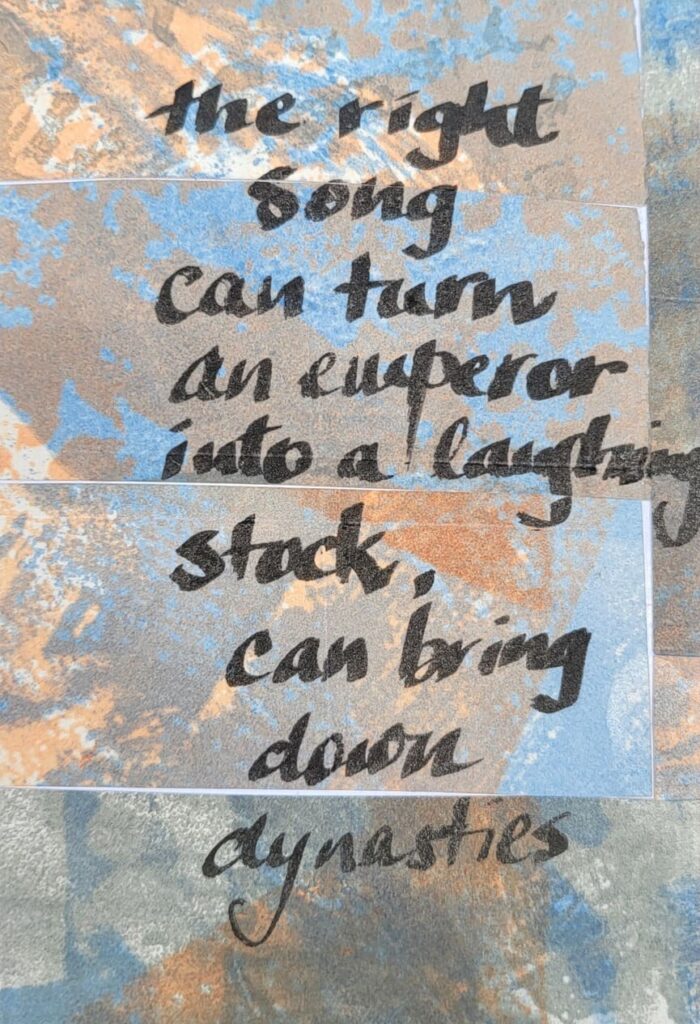 the right
song
can turn
an emperor
into a laughing
stock,
can bring
down
dynasties